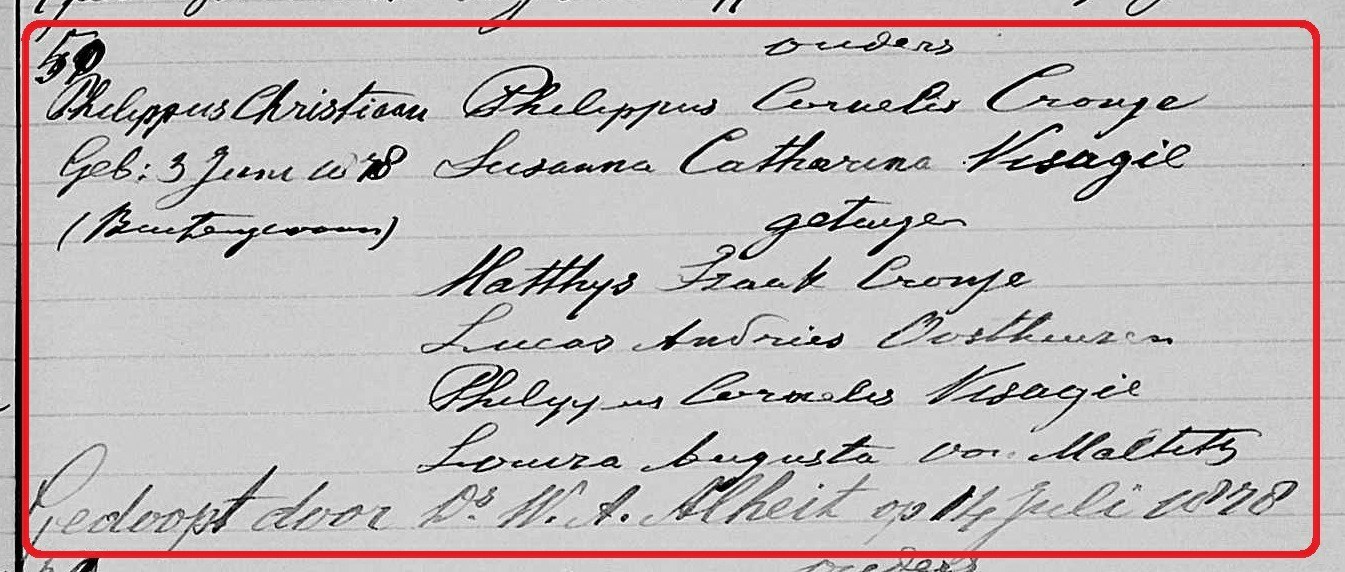 59
ouders
Philippus Christiaan Philippus Cornelis Cronje
Geb: 3 Juni 1878 Susanna Catharina Visagie
(Buitengewoon) getuigen
Matthys Izaak Cronje
Lucas Andries Oosthuizen
Philippus Cornelis Visagie
Louiza Augusta von Maltitz
Gedoopt door Ds. W. A. Alheit op 14 Juli 1878
ouders